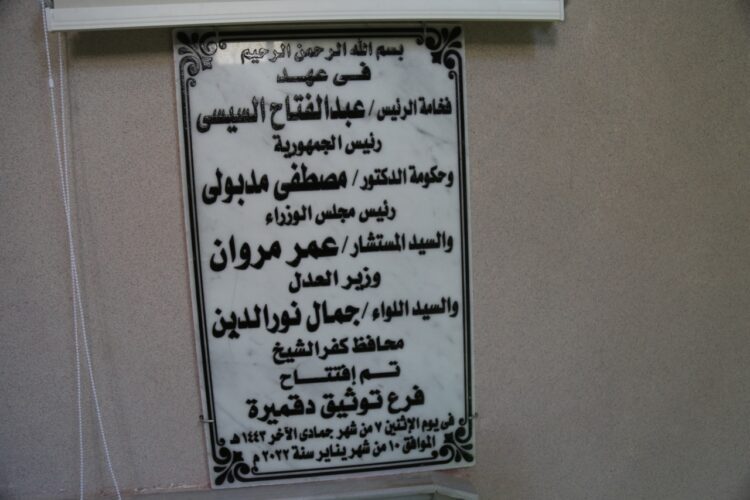 بسم الله الرحمن الرحيم
فى عهد
فخامة الرئيس / عبدالفتاح السيسى
رئيس الجمهورية
وحكومة الدكتور / مصطفى مدبولى
رئيس مجلس الوزراء
والسيد المستشار / عمر مروان
وزير العدل
والسيد اللواء / جمال نورالدين
محافظ كفرالشيخ
تم إفتتاح
فرع توثيق دقميرة
فى يوم الإثنين ٧ من شهر جمادى الآخر ١٤٤٣ هـ
الموافق ١٠ من شهر يناير سنة ٢٠٢٢ م